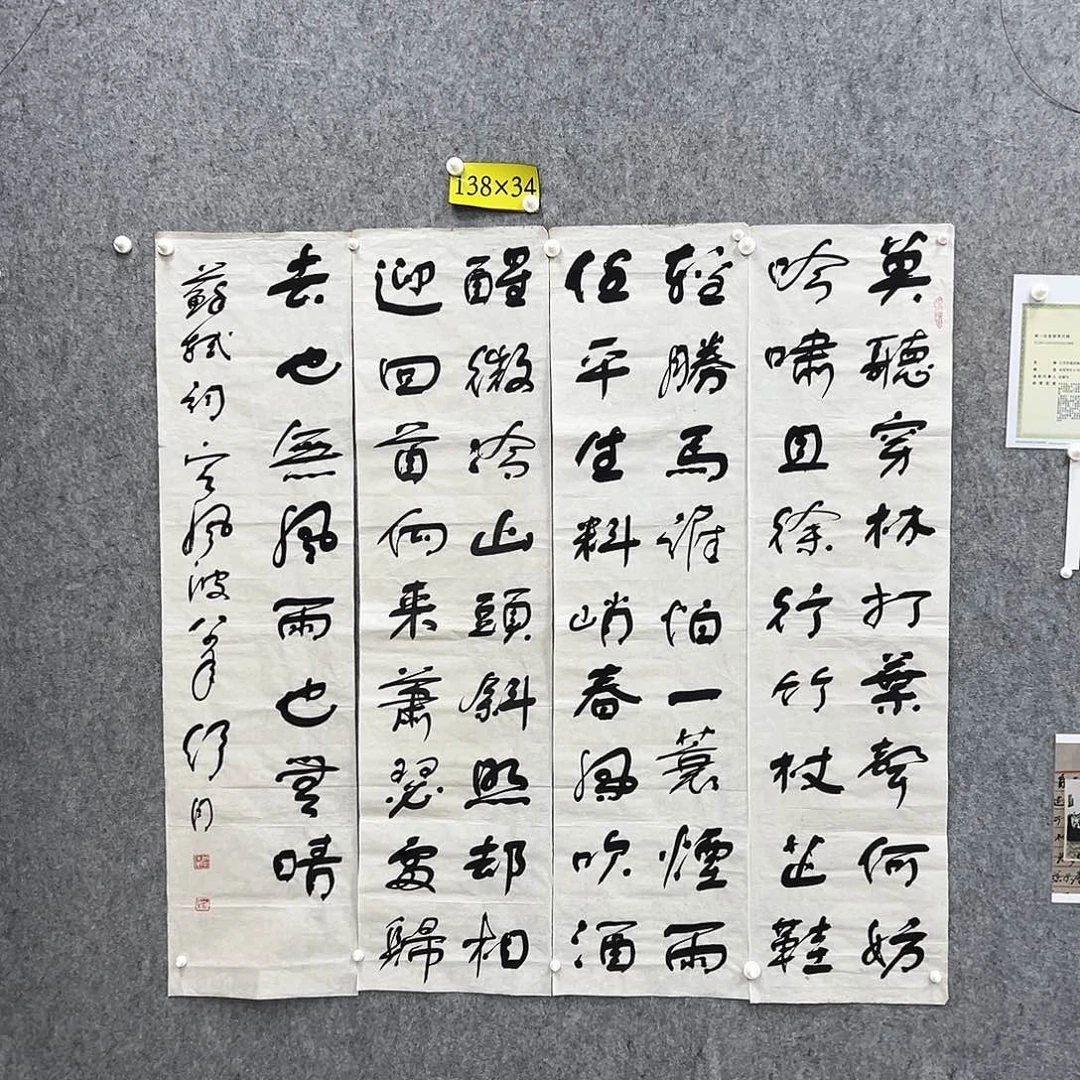 138×34
莫聽穿林打葉聲何妨
吟嘯且徐行竹杖芒鞋
輕勝馬誰怕一蓑煙雨
任平生料峭春風吹酒
醒微冷山頭斜照却相
迎回首向来蕭瑟處歸
去也無風雨也無晴
蘇軾詞定風波 舒同